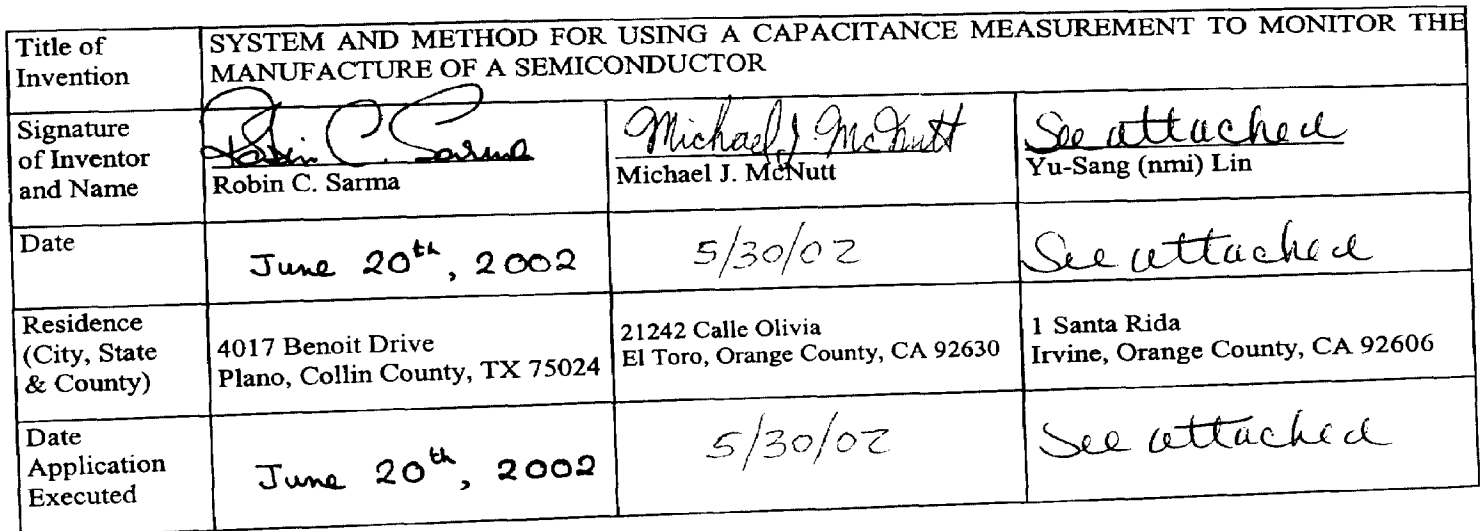 Title of
Invention
SYSTEM AND METHOD FOR USING A CAPACITANCE MEASUREMENT TO MONITOR THE
MANUFACTURE OF A SEMICONDUCTOR
Signature
of Inventor
and Name
Robin C. Sarma
Robin C. Sarma
Michael J McNutt
Michael J. McNutt
See attached
Yu-Sang (nmi) Lin
Date
June 20th, 2002
5/30/02
See attached
Residence
(City, State
& County)
4017 Benoit Drive
Plano, Collin County, TX 75024
21242 Calle Olivia
El Toro, Orange County, CA 92630
1 Santa Rida
Irvine, Orange County, CA 92606
Date
Application
Executed
June 20th, 2002
5/30/02
See attached